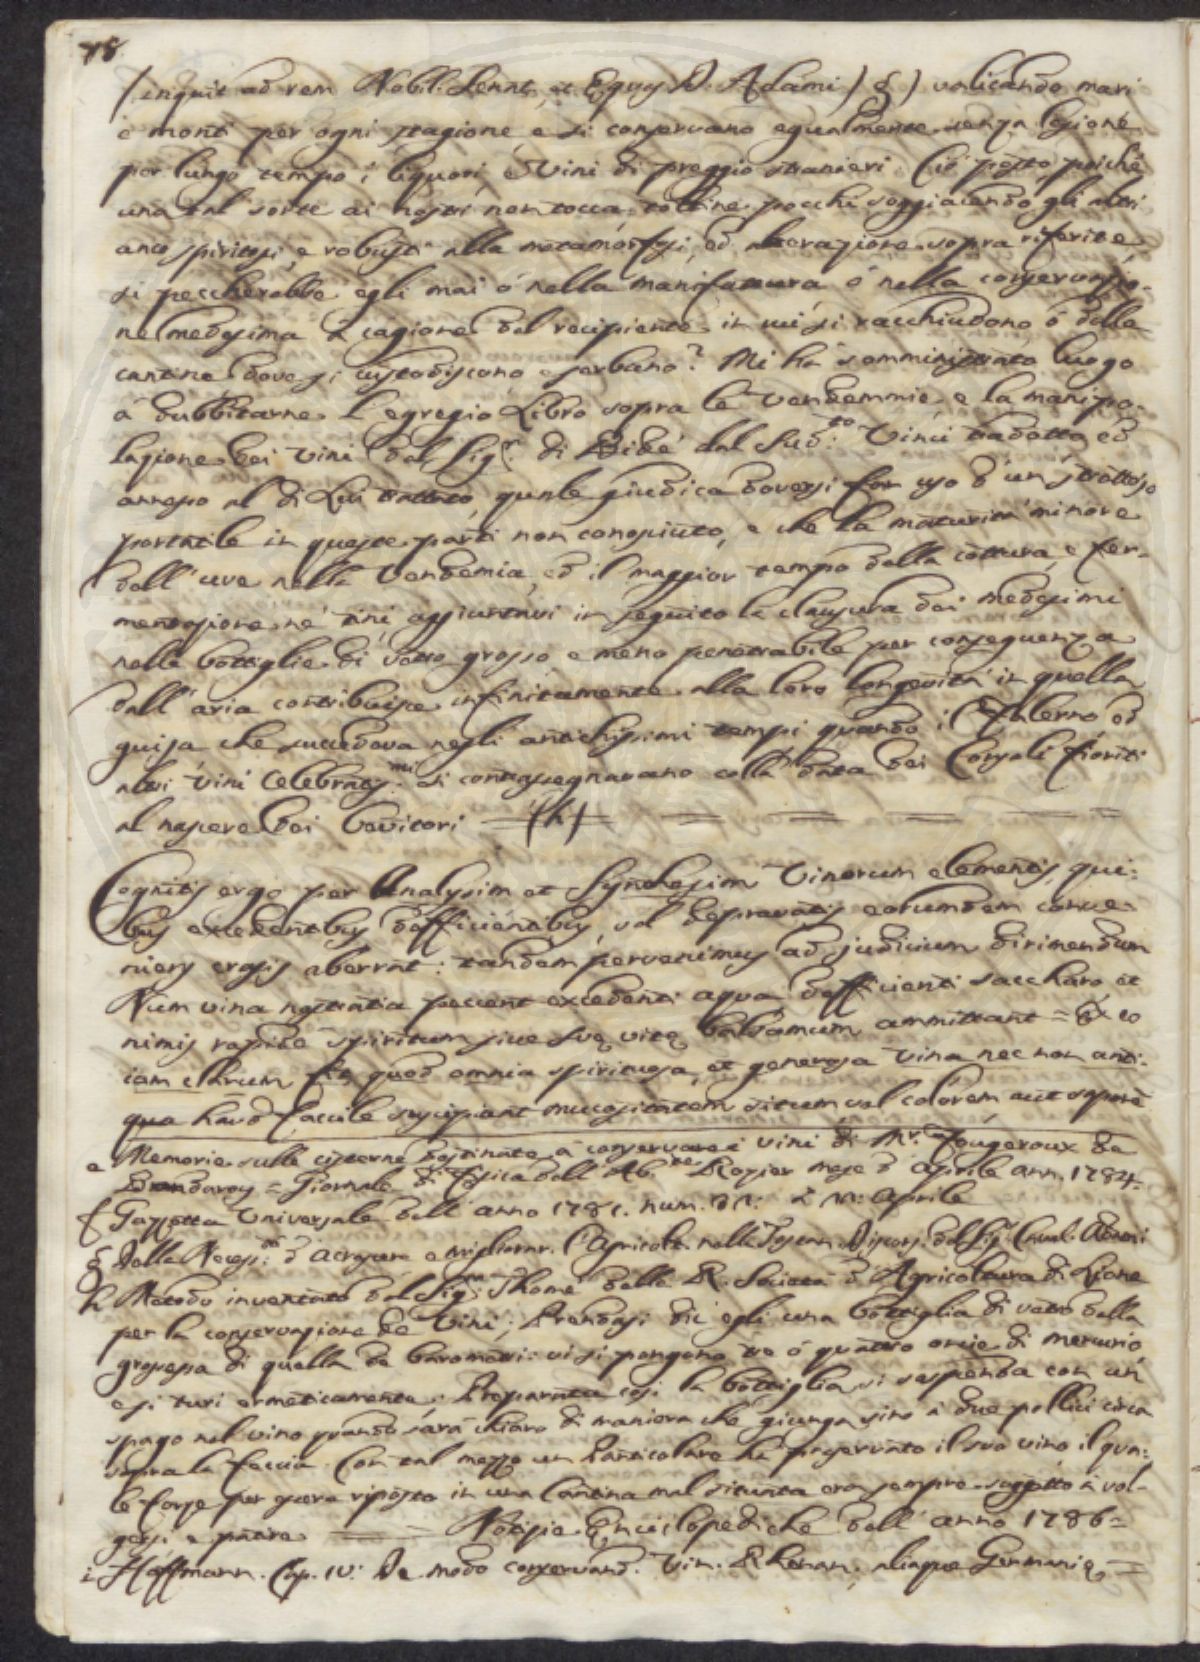 78
(inquit ad rem Nobil. Senat. et Eques D. Adami) g) valicando mari
e monti per ogni stagione, e si conservano egualmente senza lesione
per lungo tempo i liquori, e Vini di preggio stranieri. Ciò posto poiché
una tal sorte ai nostri non tocca, toltine pochi soggiacendo gli altri
anco spiritosi, e robusti alla metamorfosi, ed alterazione sopra riferite
si peccherebbe egli mai ó nella manifattura ó nella conservazio-
ne medesima á cagione del recipiente in cui si racchiudono, ó delle
cantine dove si custodiscono e serbano? Mi há somministrato luogo
á dubbitarne l'egregio Libro sopra le Vendemmie e la manipo-
lazione dei Vini del Sig.r di Bidé dal Sud.to Vinci tradotto ed
annesso al di Lui trattato, quale giudica doversi far uso d'un strettojo
portatile in queste parti non conosciuto, e che la maturità minore
dell'uve nella Vendemia, ed il maggior tempo della cottura, e fer-
mentazione ne' tini aggiuntavi in seguito la clausura dei medesimi
nelle bottiglie di vetro grosso, e meno penetrabile per conseguenza
dall'aria contribuisce infinitamente alla loro longevità in quella
guisa che succedeva negli antichissimi tempi quando il Falerno ed
altri vini Celebratiss.mi si contrasegnavano colla data dei Consoli fioriti
al nascere dei bevitori = (h) = = = = = =
Cognitis ergo per Analysim et Synthesim Vinorum elementis, qui-
bus excedentibus defficientibus, vel depravatis eorumdem conve-
niens crasis aberrat: tandem pervenimus ad judicium dirimendum
Num vina nostratia peccent excedenti aqua defficienti saccharo et
nimis rapide spiritum sive suę vitę balsamum ammittant = Ex eo
iam clarum fit, quod omnia spirituosa, et generosa Vina nec non anti-
qua haud facile suscipiant mucositatem situm vel colorem aut saporē
e Memorie sulle cisterne destinate à conservare i vini di Mr. Fougeroux de
Bondaroy = Giornale di Fisica dell'Ab.te Rozier mese d'Aprile ann. 1784.
f Gazzetta Universale dell'anno 1781. num.
g Della Necess.tà d'accrescere e migliorar. l'Agricolt. nella Toscan. Discors. del Sig.r Caval. Adami
h Metodo inventato dal Sig.r Thomé della R. Società d'Agricoltura di Lione
per la conservazione de' Vini; Prendasi dic'egli una bottiglia di vetro della
grossezza di quella de' barometri: vi si pongono tre ó quattro oncie di mercurio
e si turi ermeticamente. Preparata così la bottiglia si sospenda con un
spago nel vino quando sarà chiaro di maniera che giunga sino à due pollici circa
sopra la feccia. Con tal mezzo un Particolare há preservato il suo vino il qua-
le forse per essere riposto in una Cantina mal situata era sempre soggetto à vol-
gersi e patire = = Notizie Enciclopediche dell'anno 1786=
i Hoffmann. Cap. IV: De modo conservand. Vin. Rhenan. aliaque Germanię =